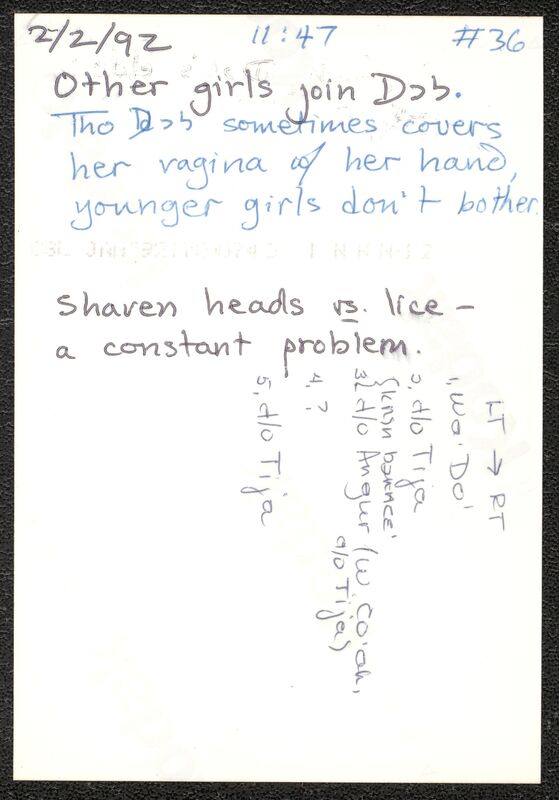 2/2/92 11:47 #36
Other girls join Dɔb.
Tho Dɔb sometimes covers
her vagina w/ her hand,
younger girls don't bother.
Shaven heads vs. lice –
a constant problem.
LT → RT
1, Wa' Do'
2, d/o Tija
3, d/o Angur (w. Co'oh,
a/o Tija)
4, ?
5, d/o Tija